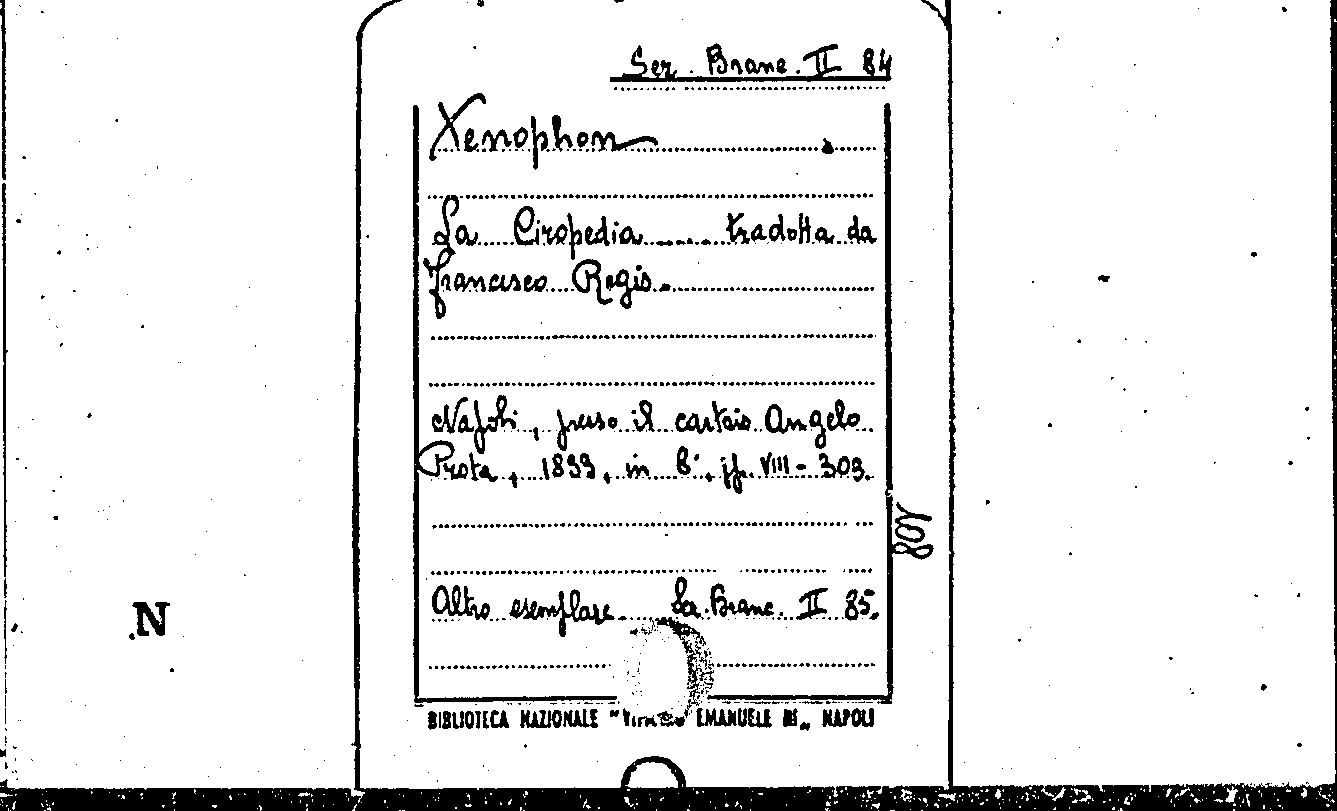 Ser. Branc. II 84
Xenophon
La Ciropedia .... tradotta da
Francesco Regis.
Napoli, presso il cartaio Angelo
Prota, 1833, in 8°, pp. VIII - 303.
808
Altro esemplare. Ser. Branc. II 85.
N
BIBLIOTECA NAZIONALE "VITTORIO EMANUELE III„ NAPOLI